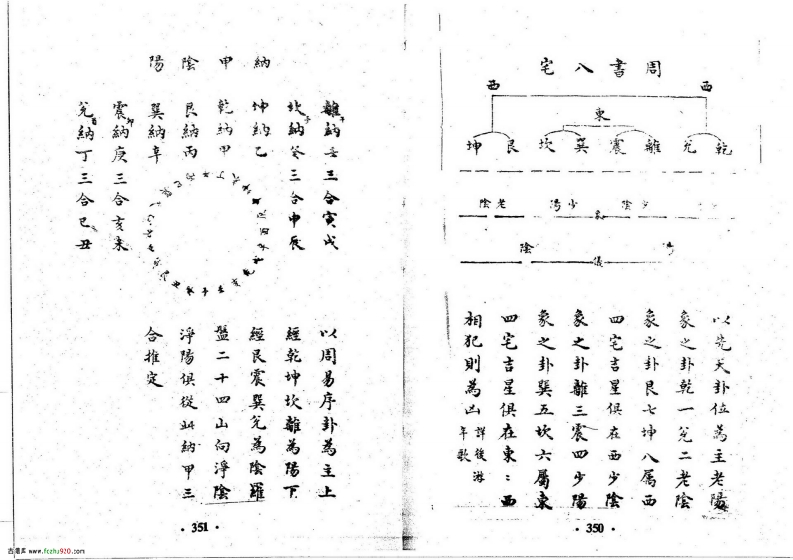 周書八宅
西 西
東
乾 兌 離 震 巽 坎 艮 坤
少陰 少陽 老陰
儀 陰
以先天卦位為主老陽
象之卦乾一兌二老陰
象之卦艮七坤八屬西
四宅吉星俱在西少陰
象之卦離三震四少陽
象之卦巽五坎六屬東
四宅吉星俱在東：西
相犯則為凶
詳後游
年歌
·350·
納甲陰陽
離納壬三合寅戌
坎納癸三合申辰
坤納乙
乾納甲
艮納丙
巽納辛
震納庚三合亥未
兌納丁三合巳丑
以周易序卦為主上
經乾坤坎離為陽下
經艮震巽兌為陰羅
盤二十四山向淨陰
淨陽俱從此納甲三
合推定
·351·
www.fczhu920.com